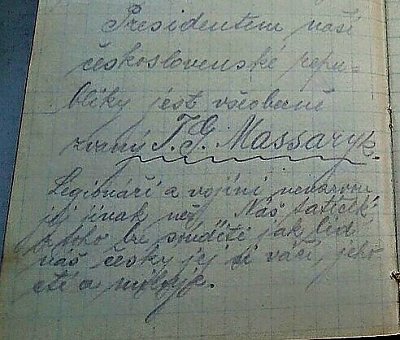 Presidentem naší
československé repu-
bliky jest všeobecně
zvaný T. G. Massaryk.
Legionáři a vojíni nenazvou
jej jinak než Náš tatíček
z toho lze souditi jak lid
náš český jej si váží, jeho
ctí a miluje.